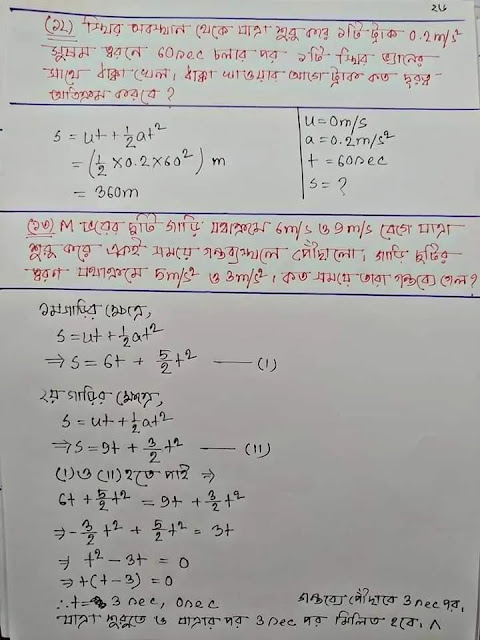 ২৬
(১২) স্থির অবস্থান থেকে যাত্রা শুরু করে ১টি ট্রাক 0.2 m/s²
সুষম ত্বরনে 60 sec চলার পর ১টি স্থির ভ্যানের
সাথে ধাক্কা খেল। ধাক্কা খাওয়ার আগে ট্রাক কত দূরত্ব
অতিক্রম করবে ?
s = ut + ½at²
= (½ × 0.2 × 60²) m
= 360m
u = 0m/s
a = 0.2m/s²
t = 60sec
s = ?
(১৩) M ভরের দুটি গাড়ি যথাক্রমে 6m/s ও 9m/s বেগে যাত্রা
শুরু করে একই সময়ে গন্তব্যস্থলে পৌঁছালো। গাড়ি দুটির
ত্বরণ যথাক্রমে 5m/s² ও 3m/s²। কত সময়ে তারা গন্তব্যে গেল ?
১ম গাড়ির ক্ষেত্রে,
s = ut + ½at²
⇒ s = 6t + 5/2 t² —— (I)
২য় গাড়ির ক্ষেত্রে,
s = ut + ½at²
⇒ s = 9t + 3/2 t² —— (II)
(I) ও (II) হতে পাই ⇒
6t + 5/2 t² = 9t + 3/2 t²
⇒ - 3/2 t² + 5/2 t² = 3t
⇒ t² - 3t = 0
⇒ t(t-3) = 0
∴ t = 3 sec, 0sec
গন্তব্যে পৌঁছাবে 3 sec পর,
যাত্রা শুরুতে ও যাত্রার পর 3 sec পর মিলিত হবে।